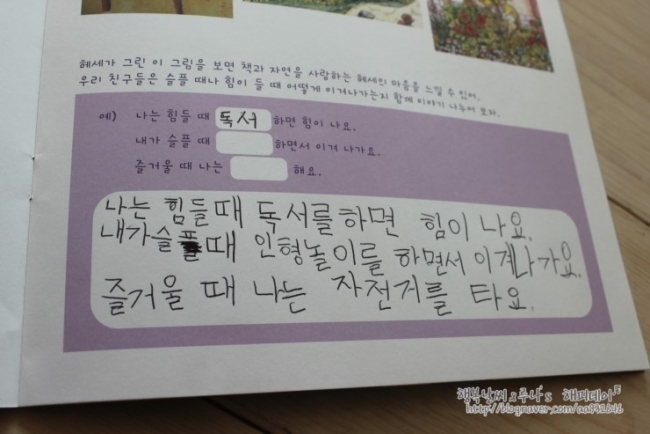 헤세가 그린 이 그림을 보면 책과 자연을 사랑하는 헤세의 마음을 느낄 수 있어.
우리 친구들은 슬플 때나 힘이 들 때 어떻게 이겨나가는지 함께 이야기 나누어 보자.
예) 나는 힘들 때 독서 하면 힘이 나요.
내가 슬플 때 하면서 이겨 나가요.
즐거울 때 나는 해요.
나는 힘들때 독서를하면 힘이 나요.
내가슬플때 인형놀이를 하면서 이겨나가요.
즐거울 때 나는 자전거를 타요.
http://blog.naver.com/aa492646